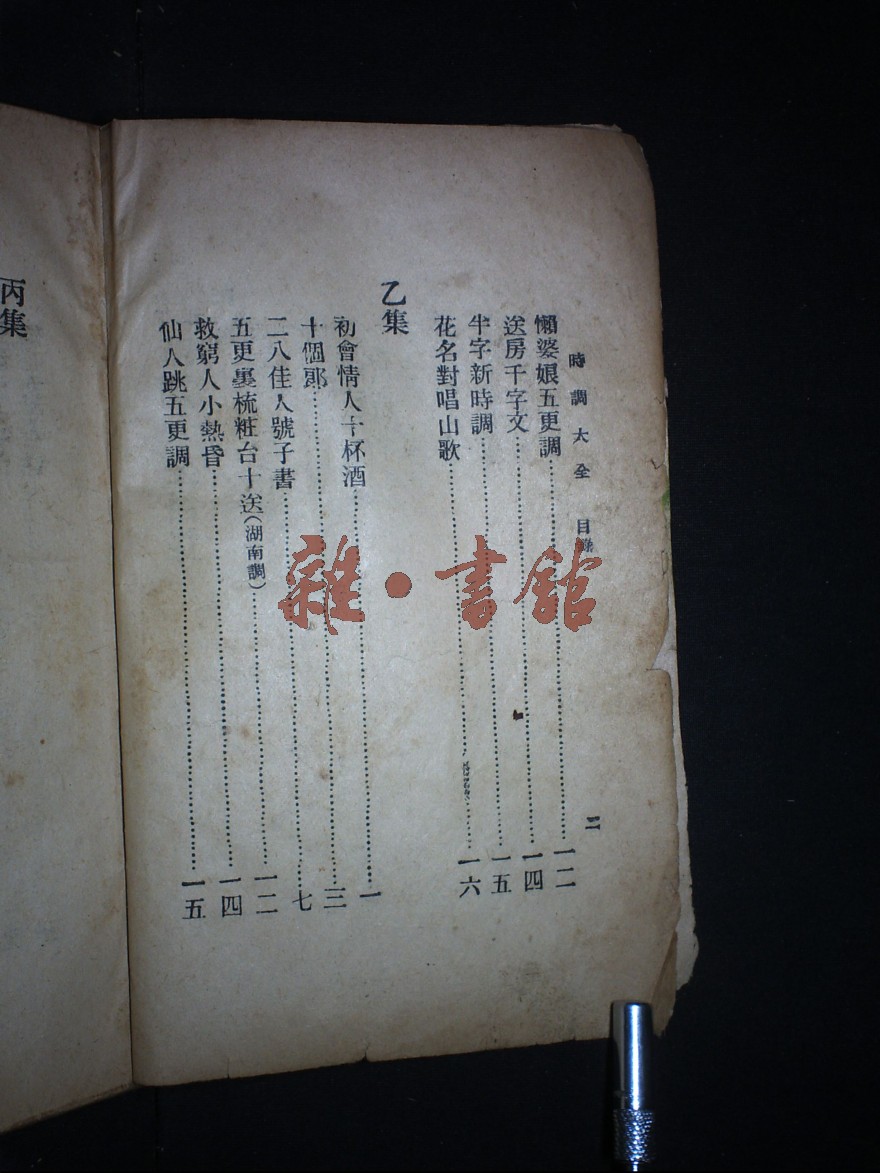 時調大全　目錄　二
懶婆娘五更調……一二
送房千字文……一四
半字新時調……一五
花名對唱山歌……一六
乙集
初會情人十杯酒……一
十個郎……三
二八佳人號子書……七
五更裏梳粧台十送(湖南調)……一二
救窮人小熱昏……一四
仙人跳五更調……一五
丙集
雜·書館